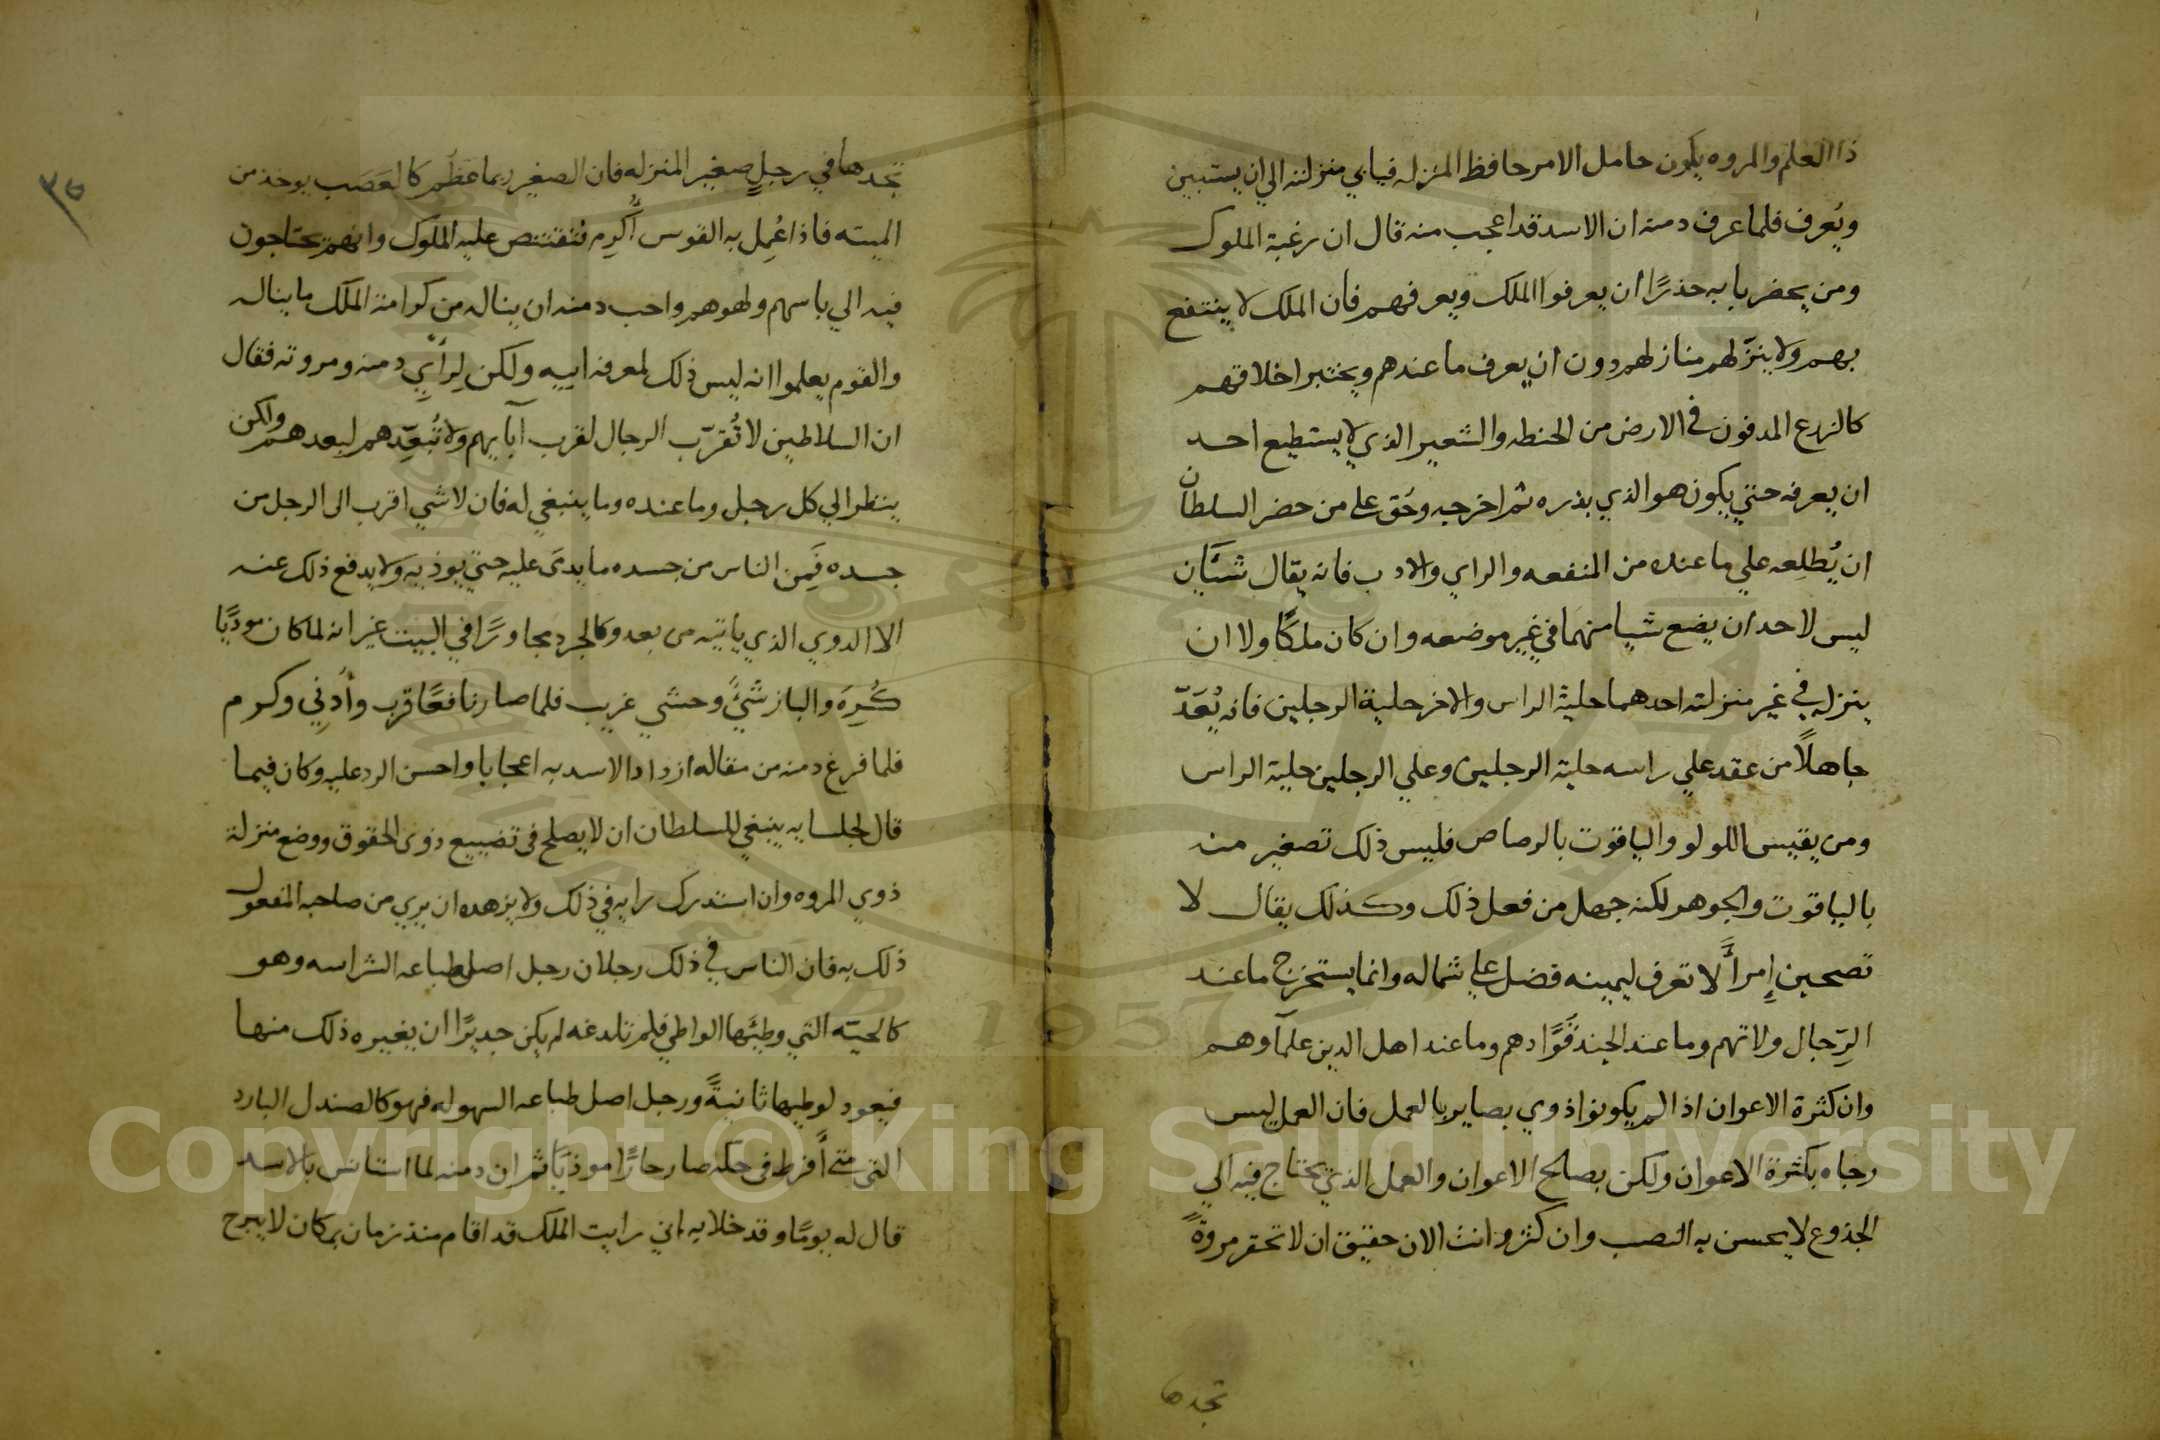 ذا العلم والمروه يكون حامل الامر حافظ المنزله فيابي منزلته الي ان يستبين
ويُعرف فلما عرف دمنه ان الاسد قد اعجب منه قال ان رغبة الملوك
ومن يحضر بابه حذرًا ان يعرفوا الملك ويعرفهم فان الملك لا ينتفع
بهم ولا ينزّلهم منازلهم دون ان يعرف ما عندهم ويختبر اخلاقهم
كالزرع المدفون في الارض من الحنطه والشعير الذي لا يستطيع احد
ان يعرفه حتي يكون هو الذي بذره ثم اخرجه وحُق علي من حضر السلطان
ان يُطلِعه علي ما عنده من المنفعه والراي والادب فانه يقال شيَّان
ليس لاحد ان يضع شيا منهما في غير موضعه وان كان ملكًا ولا ان
ينزله في غير منزلته احدهما حلية الراس والاخر حلية الرجلين فانه يُعَدّ
جاهلًا من عقد علي راسه حلية الرجلين وعلي الرجلين حلية الراس
ومن يقيس اللولو والياقوت بالرصاص فليس ذلك تصغير منه
بالياقوت والجوهر لكنه جهل من فعل ذلك وكذلك يقال لا
تصحبن إمرأً لا تعرف ليمينه فضل علي شماله وانما يستخرج ما عند
الرّجال ولاتهم وما عند الجند قوّادهم وما عند اهل الدين علمآوهم
وان كثرة الاعوان اذا لم يكونوا ذوي بصاير بالعمل فان العمل ليس
رجاه بكثرة الاعوان ولكن بصالح الاعوان والعمل الذي يحتاج فيه الي
الجذوع لا يحسن به القصب وان كثر وانت الان حقيق ان لا تحقر مروةً
تجدها
٣٥
تجدها في رجلٍ صغير المنزله فان الصغير ربما عظُم كالعَصَب يوخذ من
الميته فاذا عُمِل به القوس أُكرِم فتقتنص عليه الملوك وانهم يحتاجون
فيه الي باسهم ولهوهم واحب دمنه ان ينال من كرامة الملك ما ينال
والقوم يعلموا انه ليس ذلك لمعرفه ابيه ولكن لِرأيِ دمنه ومروته فقال
ان السلاطين لا تُقرّب الرجال لقرب آبايهم ولا تُبعِّدهم لبعدهم ولكن
ينظر الي كل رجل وما عنده وما ينبغي له فان لا شي اقرب الى الرجل من
جسده فَمِن الناس من جسده ما يدى عليه حتي يوذيه ولا يدفع ذلك عنه
الا الدوي الذي ياتيه من بعد وكالجرد مجاورًا في البيت غير انه لما كان موذيًا
كُرِهَ والباز شيٌ وحشي غريب فلما صار نافعًا قرب وأُدنِي وكرم
فلما فرغ دمنه من مقاله ازداد الاسد به اعجابا واحسن الرد عليه وكان فيما
قال لجلسايه ينبغي للسلطان ان لا يصلح في تضييع ذوى الحقوق ووضع منزلة
ذوي المروه وان استدرك رايه في ذلك ولا يزهده ان يري من صاحبه المفعول
ذلك به فان الناس في ذلك رجلان رجل اصل طباعه الشراسه وهو
كالحيّه التي وطيَها الواطي فلم تلدغه لم يكن جديرًا ان يغيره ذلك منها
فيعود لوطيها ثانيةً ورجل اصل طباعه السهوله فهو كالصندل البارد
التي متي أفرط في حكه صار حارًا موذيًا ثم ان دمنه لما استانس بالاسد
قال له يومًا وقد خلا به اني رايت الملك قد اقام منذ زمان بمكان لا يبرح
Copyright © King Saud University
1957